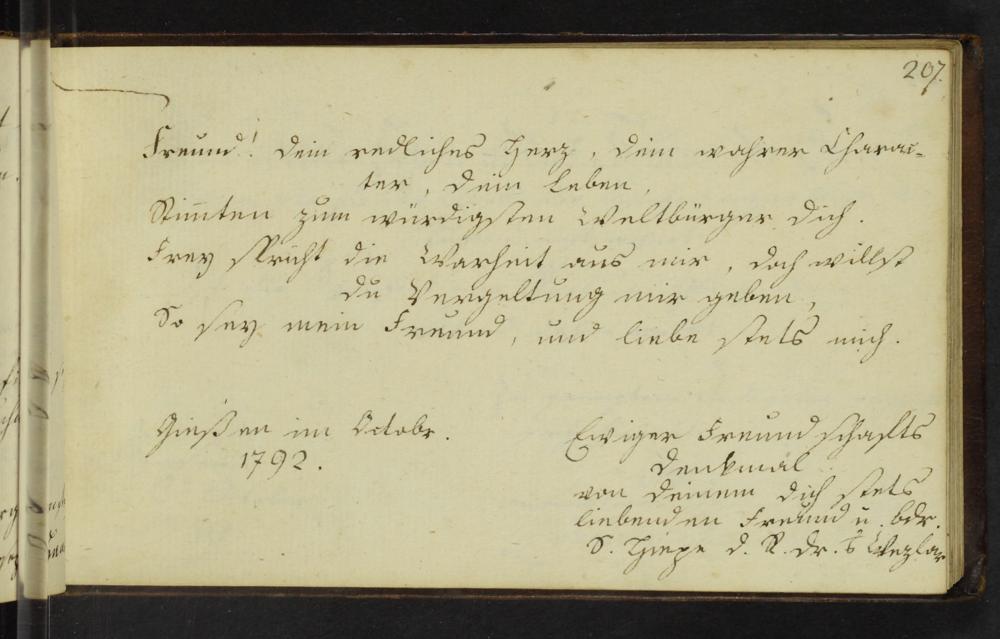 207.
Freund! Dein redliches Herz, dein wahrer Charac-
ter, dein Leben,
Stimten zum würdigsten Weltbürger dich.
Frey spricht die Warheit aus mir, doch willst
du Vergeltung mir geben,
So sey mein Freund, und liebe stets mich.
Gießen im Octobr.
1792.
Ewiger Freundschafts
Denkmal
von deinem dich stets
liebenden Freund u. bdr.
S. d. R. dr. Wezlar